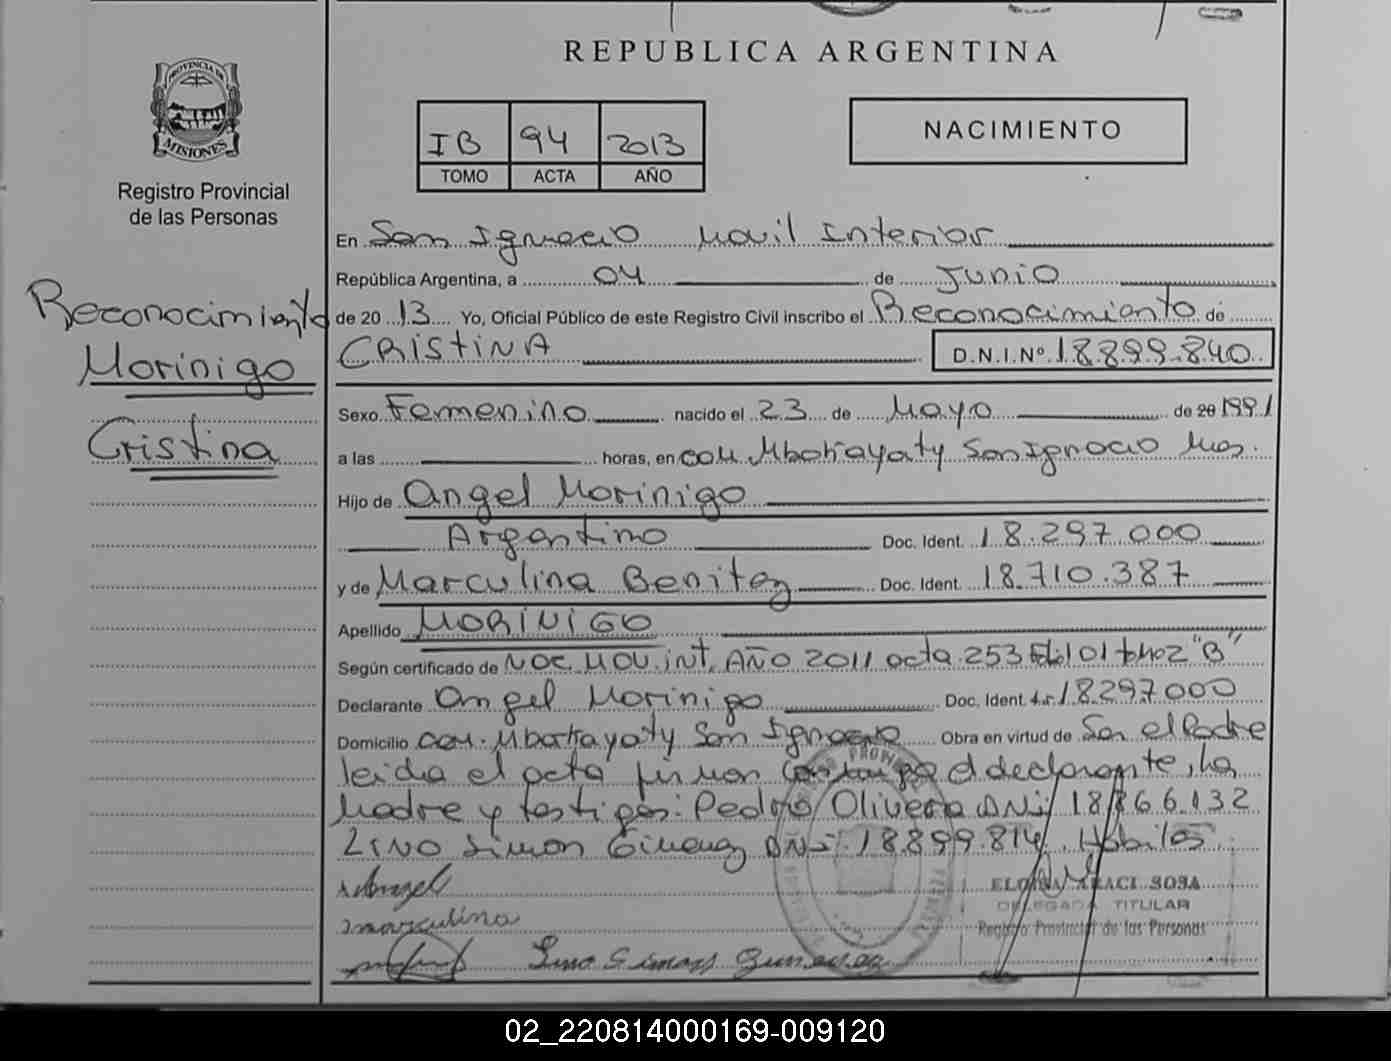 REPUBLICA ARGENTINA
PROVINCIA DE
MISIONES
Registro Provincial
de las Personas
IB 94 2013
TOMO ACTA AÑO
NACIMIENTO
Reconocimiento
Morinigo
Cristina
En San Ignacio Movil Interior
República Argentina, a 04 de Junio
de 20 13 Yo, Oficial Público de este Registro Civil inscribo el Reconocimiento de
CRISTINA D.N.I.Nº 18.899.840
Sexo Femenino nacido el 23 de Mayo de 20 1991
a las horas, en COM. Mbokayaty San Ignacio Mes.
Hijo de Angel Morinigo
Argentino Doc. Ident. 18.297.000
y de Marculina Benitez Doc. Ident. 18.710.387
Apellido MORINIGO
Según certificado de NOC. MOV. INT. AÑO 2011 acta 253 101 "B"
Declarante Angel Morinigo Doc. Ident. 18.297.000
Domicilio com. Mbokayaty San Ignacio Obra en virtud de Ser el Padre
leida el acta firman el declarante, la
Madre y testigos: Pedro Olivera DNI 18.866.132
Lino Simon Gimenez DNI 18.899.814. Habiles
Angel
marculina
Lino Simon Gimenez
SOSA
DELEGADA TITULAR
Registro Provincial de las Personas
02_220814000169-009120